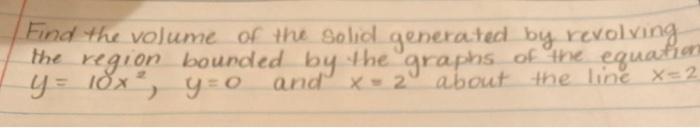 Find the volume of the solid generated by revolving
the region bounded by the graphs of the equation
y = 10x², y=0 and x = 2 about the line x=2